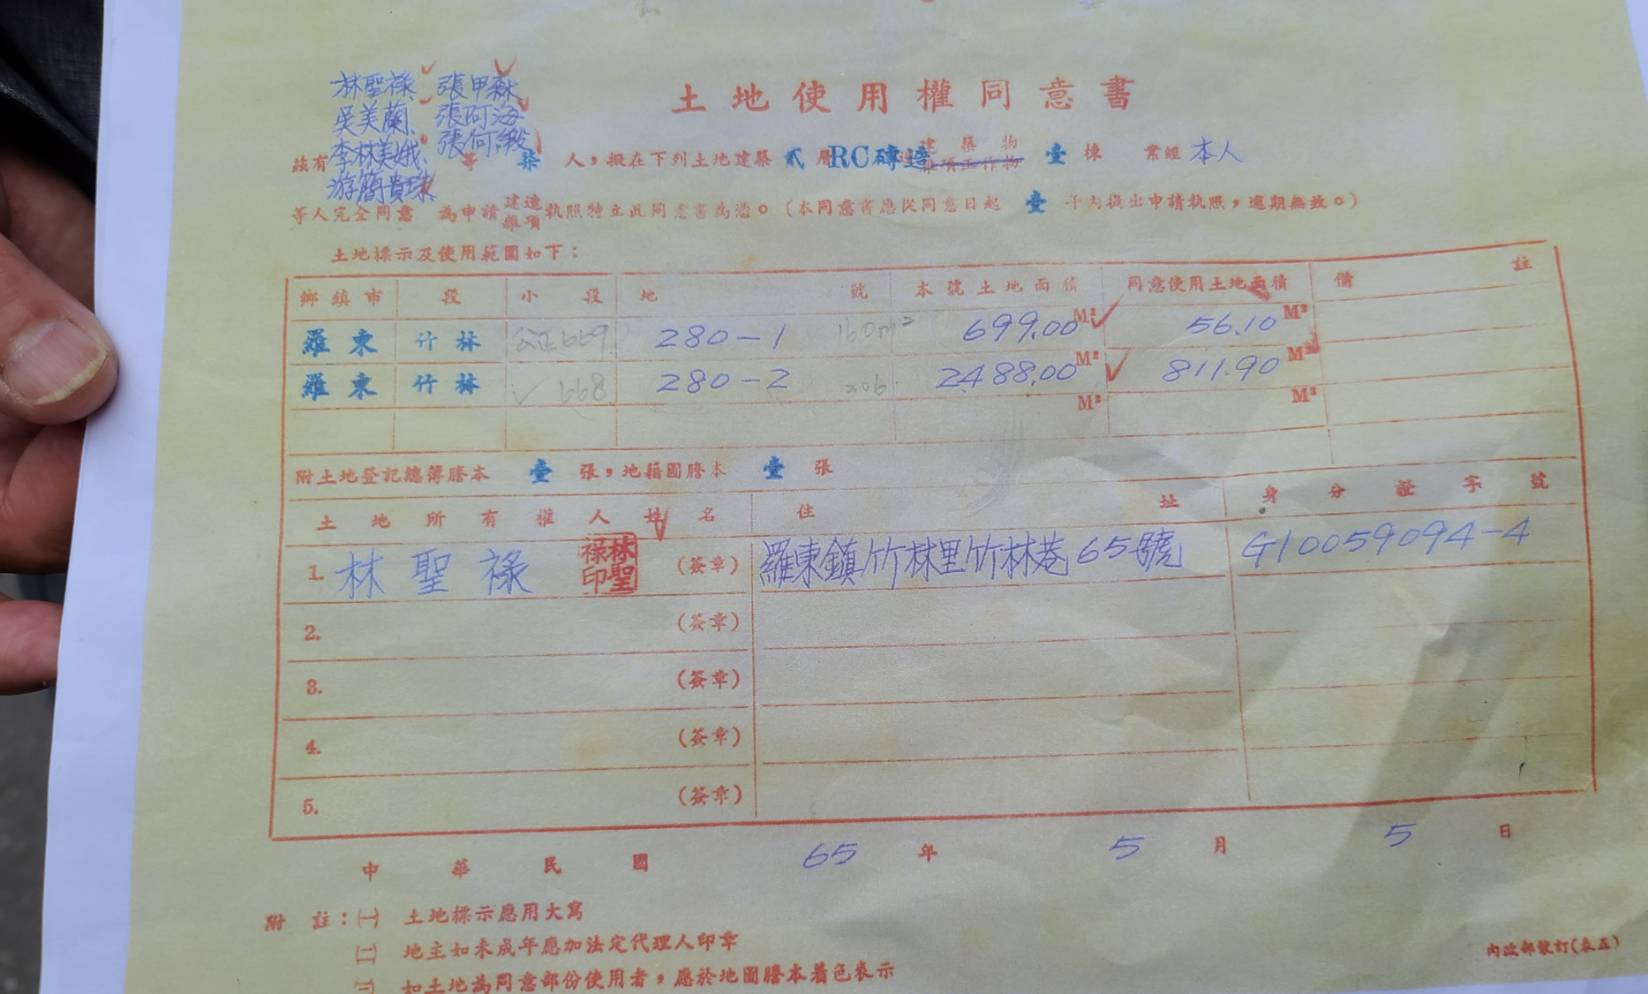 土地使用權同意書
林聖祿、張甲森
吳美蘭、張阿海
李林美娥、張何緞
游簡貴珠
茲有 等 柒 人，擬在下列土地建築 貳 層 RC磚造 建築物 雜項工作物 壹 棟 業經 本人
等人完全同意 為申請 建造 雜項 執照特立此同意書為憑。（本同意書應從同意日起 壹 年內提出申請執照，逾期無效。）
土地標示及使用範圍如下：
鄉鎮市 段 小段 地號 本號土地面積 同意使用土地面積 備註
羅東 竹林 公正669 280-1 160m² 699.00 M² 56.10 M²
羅東 竹林 668 280-2 306 2488.00 M² 811.90 M²
M² M²
附土地登記總簿謄本 壹 張，地籍圖謄本 壹 張
土地所有權人姓名 住址 身分證字號
1. 林聖祿 林聖祿印 （簽章） 羅東鎮竹林里竹林巷65號 G10059094-4
2. （簽章）
3. （簽章）
4. （簽章）
5. （簽章）
中華民國 65 年 5 月 5 日
附註：㈠ 土地標示應用大寫
㈡ 地主如未成年應加法定代理人印章
㈢ 如土地為同意部份使用者，應於地圖謄本着色表示
內政部製訂(表五)